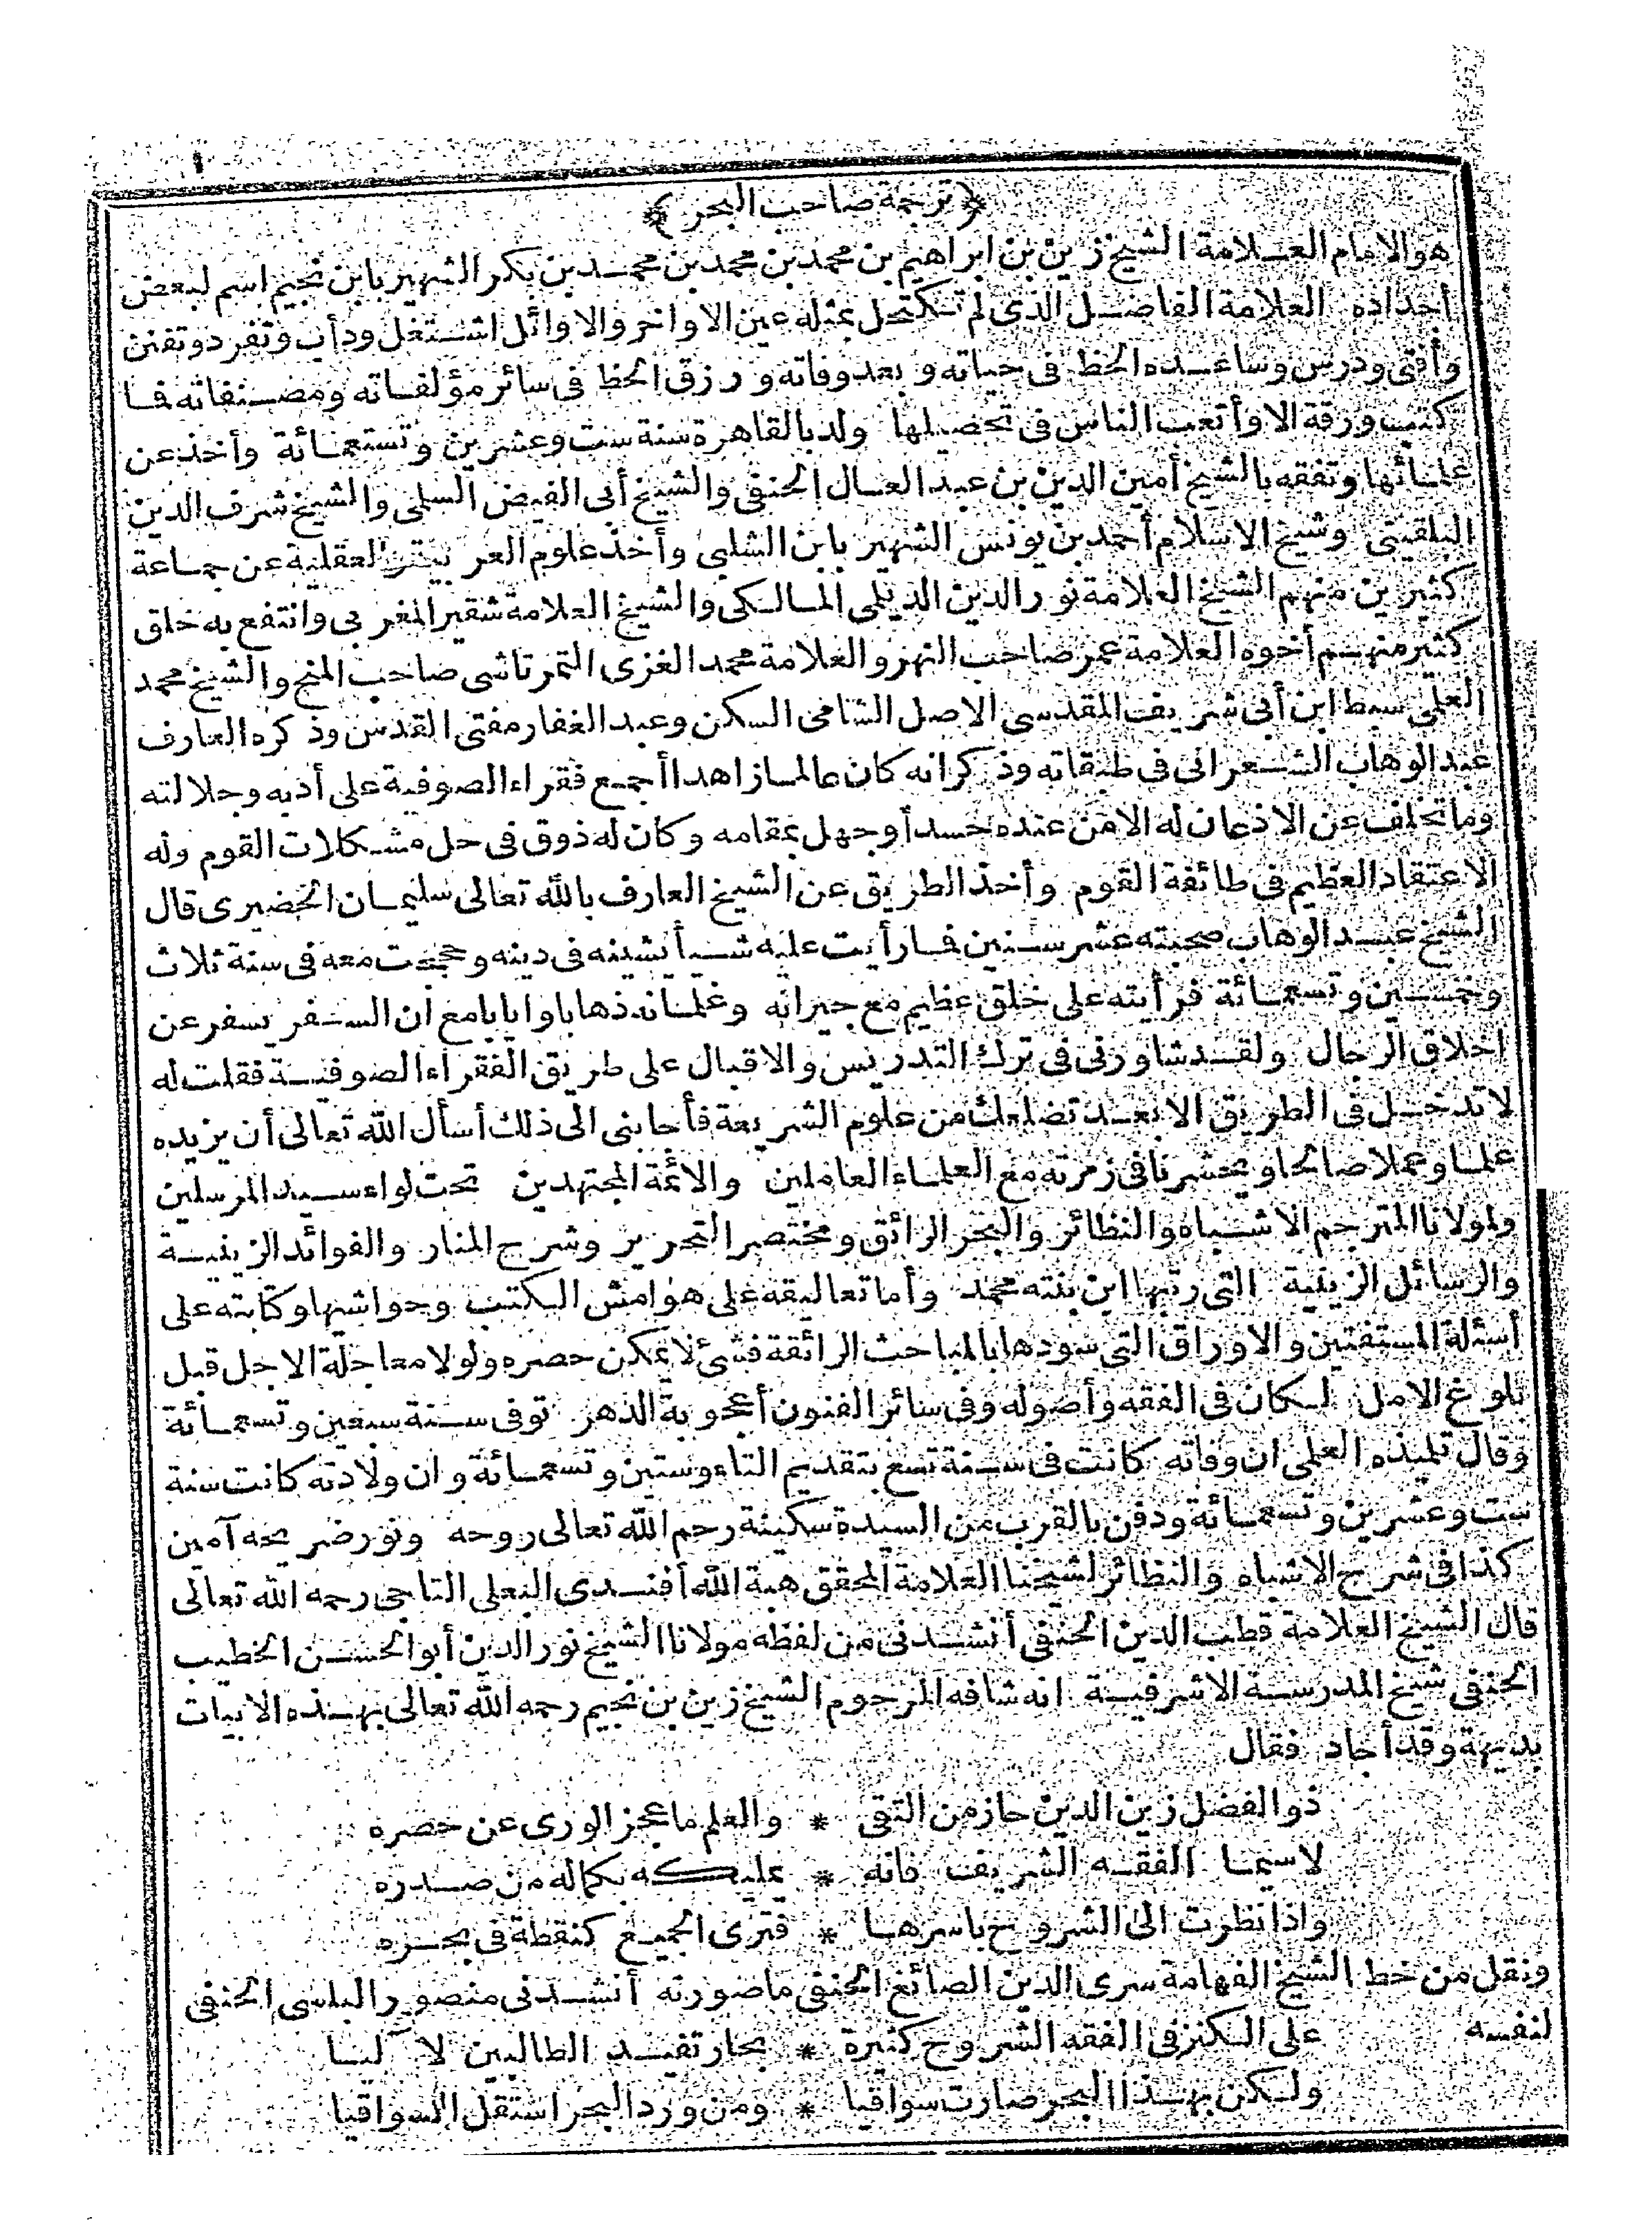 ﴿ ترجمة صاحب البحر ﴾
هو الامام العلامة الشيخ زين بن ابراهيم بن محمد بن محمد بن محمد بن بكر الشهير بابن نجيم اسم لبعض
أجداده العلامة الفاضل الذى لم تكتحل بمثله عين الاواخر والاوائل اشتغل ودأب وتفرد وتفنن
وأفتى ودرس وساعده الحظ فى حياته و بعد وفاته و رزق الحظ فى سائر مؤلفاته ومصنفاته فما
كتب ورقة الا وأتعب الناس فى تحصيلها ولد بالقاهرة سنة ست وعشرين وتسعمائة وأخذ عن
علمائها وتفقه بالشيخ أمين الدين بن عبد العال الحنفى والشيخ أبى الفيض السلمى والشيخ شرف الدين
البلقينى وشيخ الاسلام أحمد بن يونس الشهير بابن الشلبى وأخذ علوم العربية والعقلية عن جماعة
كثيرين منهم الشيخ العلامة نور الدين الديلمى المالكى والشيخ العلامة شقير المغربى وانتفع به خلق
كثير منهم أخوه العلامة عمر صاحب النهر والعلامة محمد الغزى التمرتاشى صاحب المنح والشيخ محمد
العلمى سبط ابن أبى شريف المقدسى الاصل الشامى السكن وعبد الغفار مفتى القدس وذكره العارف
عبد الوهاب الشعرانى فى طبقاته وذكر انه كان عالما زاهدا أجمع فقراء الصوفية على أدبه وجلالته
وما تخلف عن الاذعان له الا من عنده حسد أو جهل بمقامه وكان له ذوق فى حل مشكلات القوم وله
الاعتقاد العظيم فى طائفة القوم وأخذ الطريق عن الشيخ العارف بالله تعالى سليمان الخضيرى قال
الشيخ عبد الوهاب صحبته عشر سنين فما رأيت عليه شيأ يشينه فى دينه وحججت معه فى سنة ثلاث
وخمسين وتسعمائة فرأيته على خلق عظيم مع جيرانه وغلمانه ذهابا وايابا مع ان السفر يسفر عن
اخلاق الرجال ولقد شاورنى فى ترك التدريس والاقبال على طريق الفقراء الصوفية فقلت له
لا تدخل فى الطريق الا بعد تضلعك من علوم الشريعة فأجابنى الى ذلك أسأل الله تعالى أن يزيده
علما وعملا صالحا ويحشرنا فى زمرته مع العلماء العاملين والائمة المجتهدين تحت لواء سيد المرسلين
ولمولانا المترجم الاشباه والنظائر والبحر الرائق ومختصر التحرير وشرح المنار والفوائد الزينية
والرسائل الزينية التى رتبها ابن بنته محمد وأما تعاليقه على هوامش الكتب وحواشيها وكتابته على
أسئلة المستفتين والاوراق التى سودها بالمباحث الرائقة فشئ لا يمكن حصره ولولا معاجلة الاجل قبل
بلوغ الامل لكان فى الفقه وأصوله وفى سائر الفنون أعجوبة الدهر توفى سنة سبعين وتسعمائة
وقال تلميذه العلمى ان وفاته كانت فى سنة تسع بتقديم التاء وستين وتسعمائة وان ولادته كانت سنة
ست وعشرين وتسعمائة ودفن بالقرب من السيدة سكينة رحم الله تعالى روحه ونور ضريحه آمين
كذا فى شرح الاشباه والنظائر لشيخنا العلامة المحقق هبة الله أفندى البعلى التاجى رحمه الله تعالى
قال الشيخ العلامة قطب الدين الحنفى أنشدنى من لفظه مولانا الشيخ نور الدين أبو الحسن الخطيب
الحنفى شيخ المدرسة الاشرفية انه شافه المرحوم الشيخ زين بن نجيم رحمه الله تعالى بهذه الابيات
بديهة وقد أجاد فقال
ذو الفضل زين الدين حاز من التقى * والعلم ما عجز الورى عن حصره
لا سيما الفقه الشريف فانه * عليكه بكماله من صدره
واذا نظرت الى الشروح باسرها * فترى الجميع كنقطة فى بحره
ونقل من خط الشيخ الفهامة سرى الدين الصائغ الحنفى ما صورته أنشدنى منصور البلسى الحنفى
لنفسه على الكنز فى الفقه الشروح كثيرة * بحار تفيد الطالبين لآليا
ولكن بهذا البحر صارت سواقيا * ومن ورد البحر استقل السواقيا